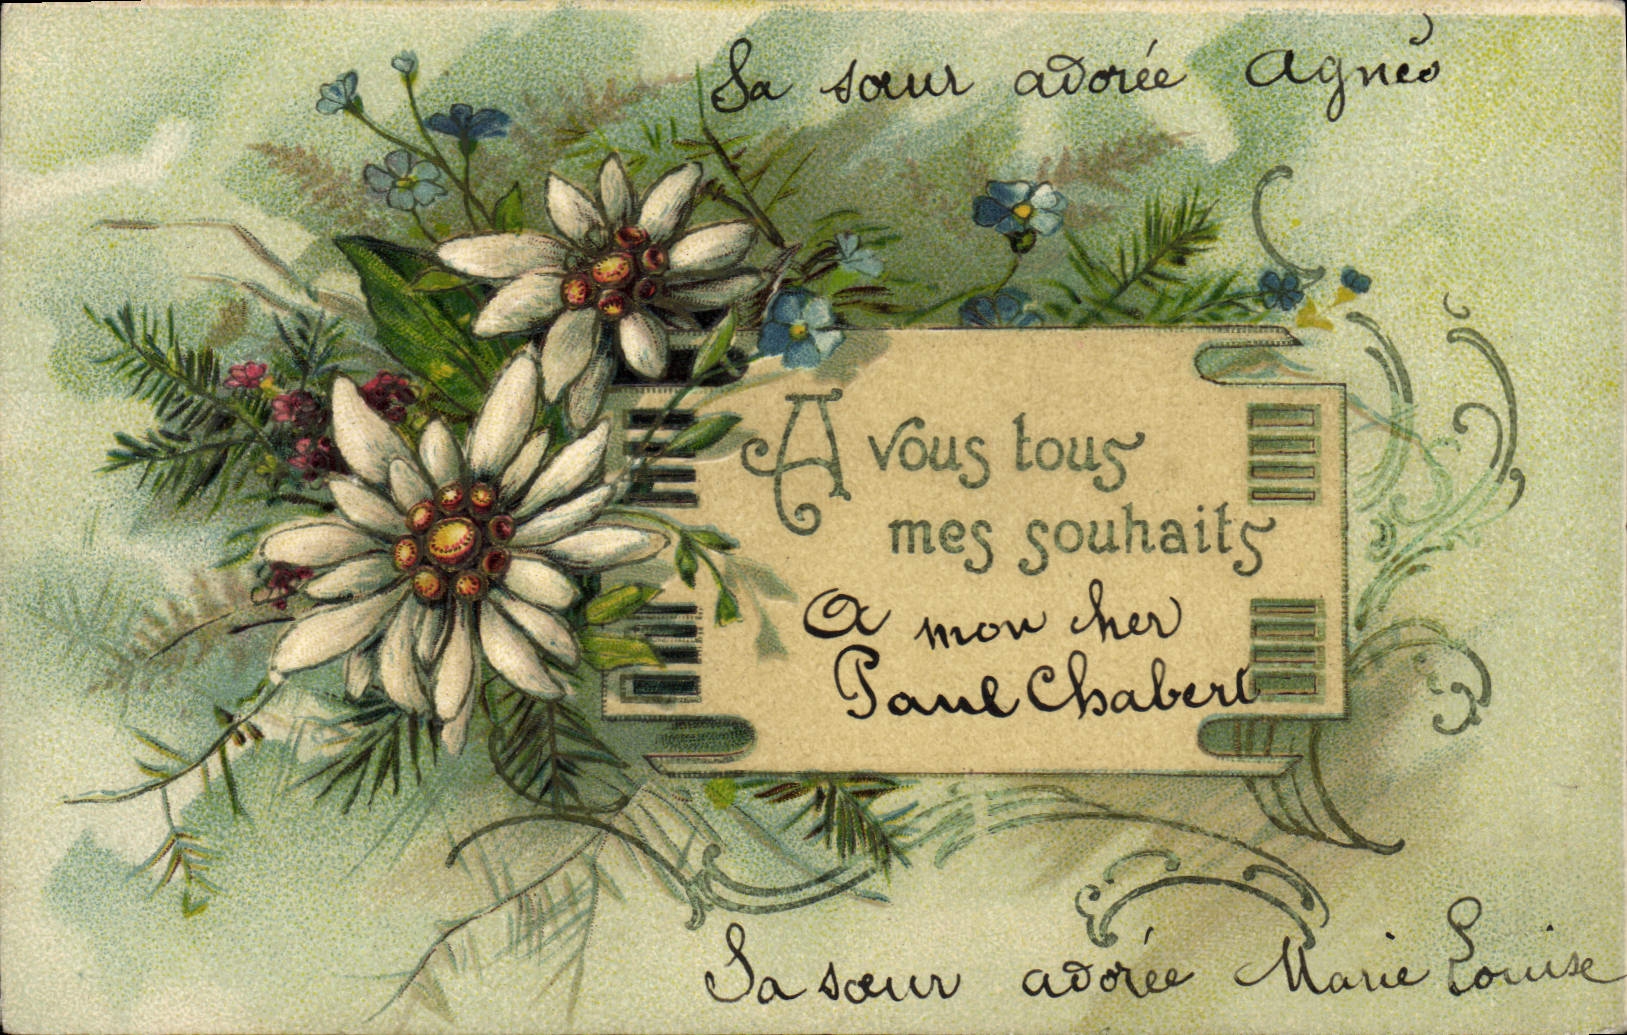 Sa sœur adorée Agnès
A vous tous
mes souhaits
A mon cher
Paul Chabert
Sa sœur adorée Marie Louise